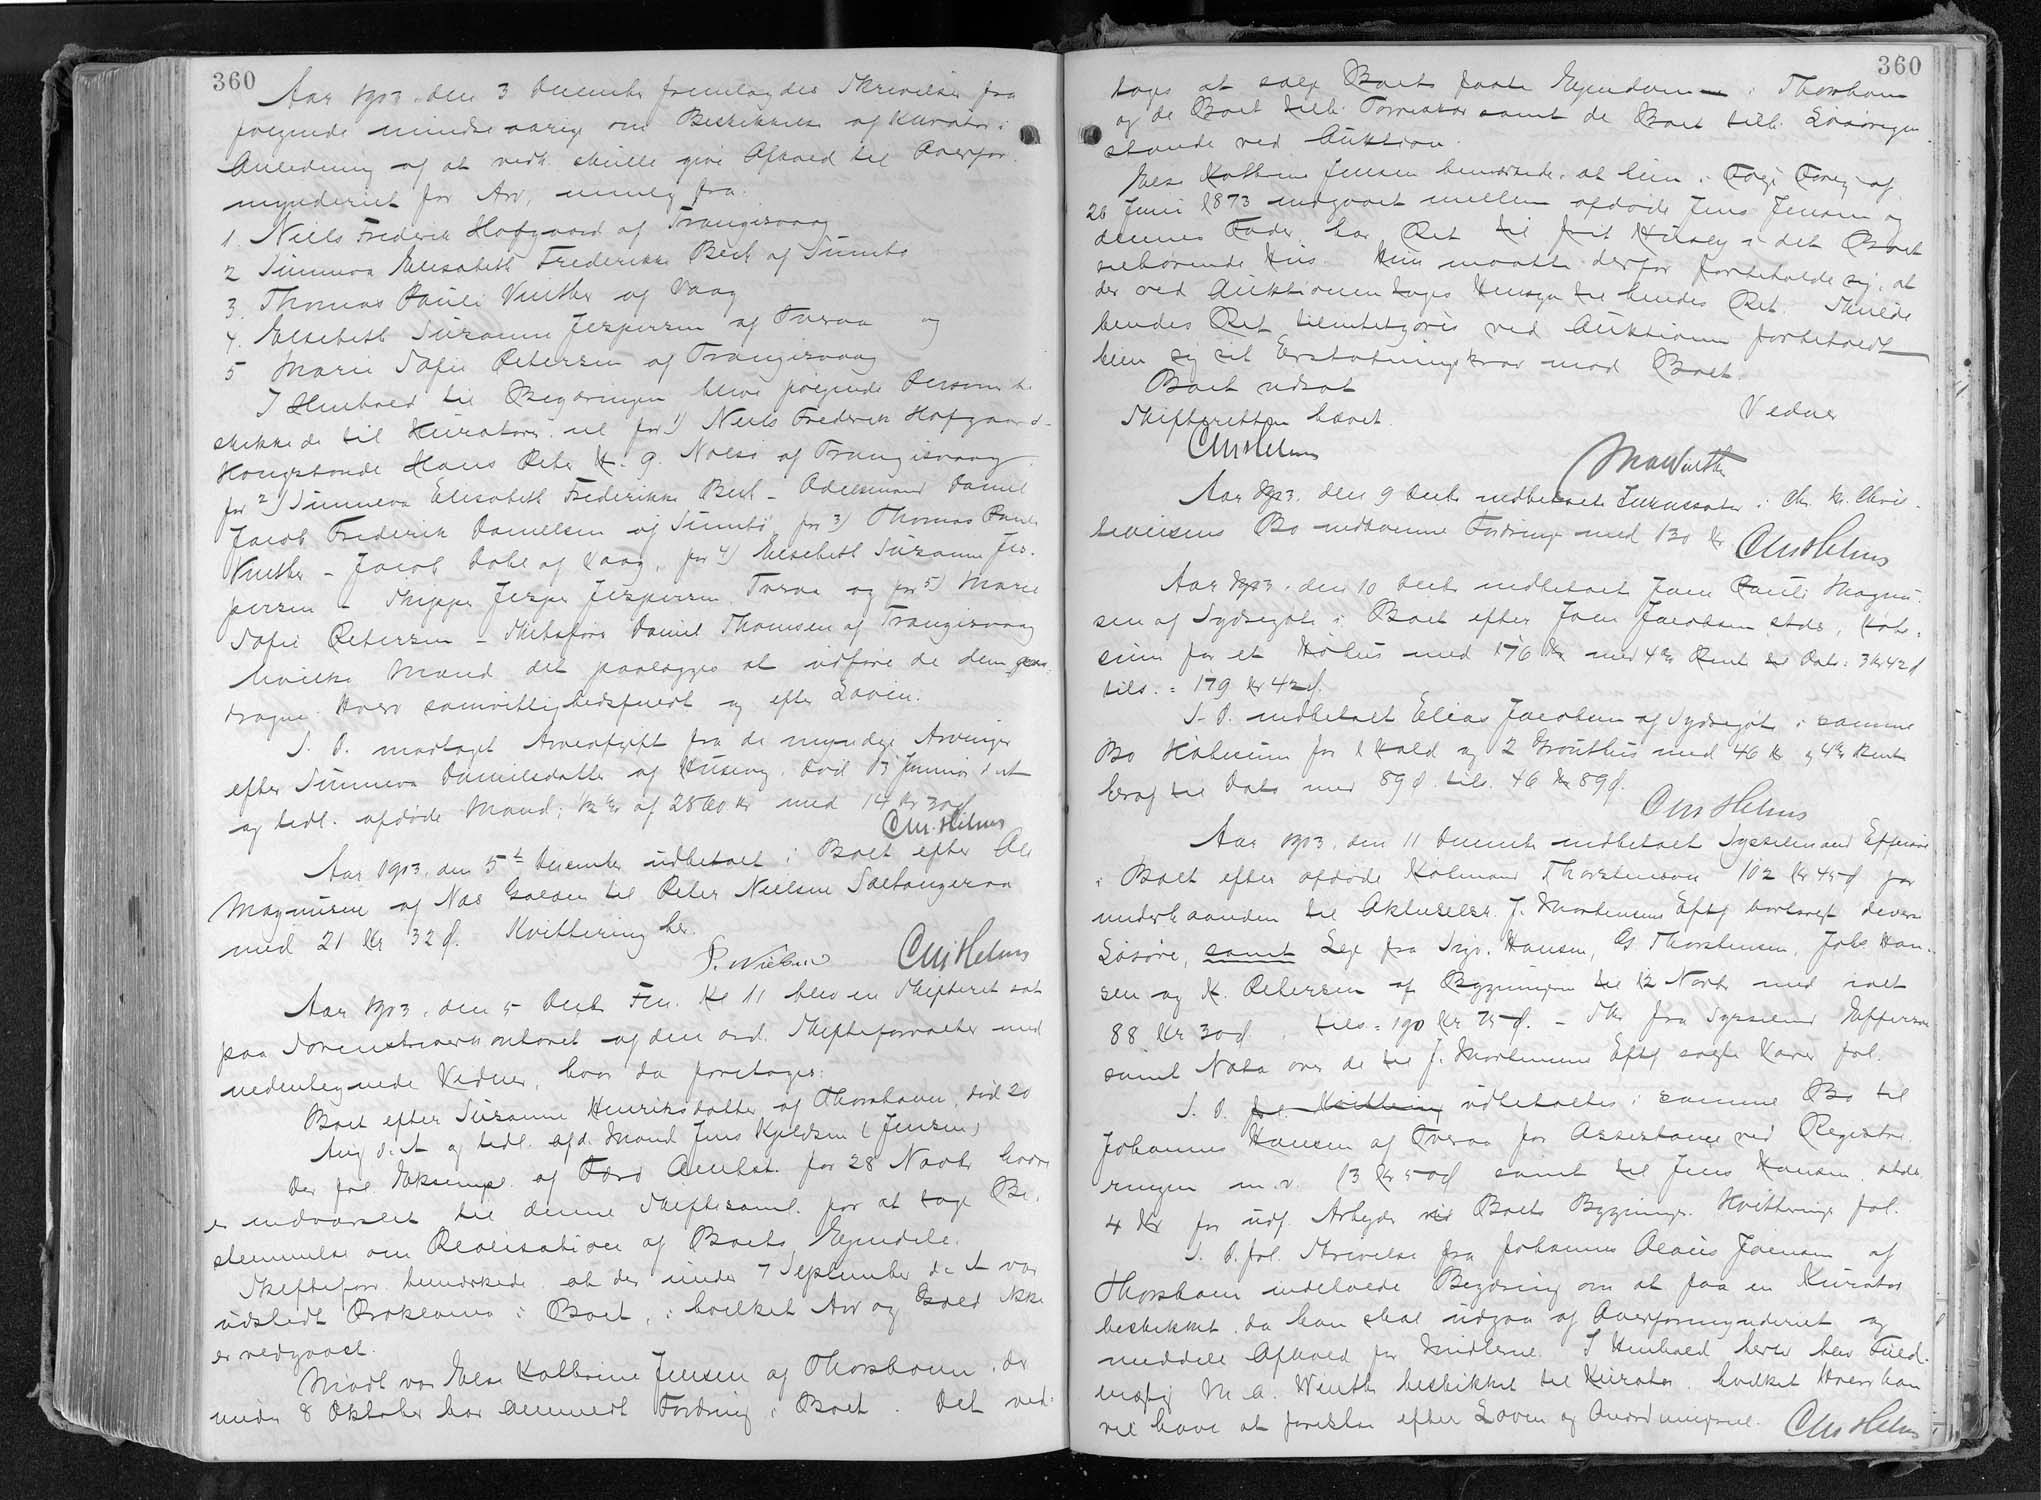 360
Aar 1913, den 3 December fremlagdes Skrivelser fra
følgende mindreaarige om Beskikkelse af Kurator i
Anledning af at vedk. skulle give Afkald til Overfor-
mynderiet for Arv, nemlig fra:
1. Niels Frederik Hofgaard af Trangisvaag
2 Sunneva Elisabeth Frederikke Bech af Sumbø
3. Thomas Pauli Vinther af Vaag
4. Elsebeth Susanne Jespersen af Tveraa og
5 Marie Sofie Petersen af Trangisvaag
I Henhold til Begæringen blive følgende Personer be-
skikkede til Kuratorer nl. for 1) Niels Frederik Hofgaard -
Kongsbonde Hans Peter H. g. Nolsø af Trangisvaag
for 2) Sunneva Elisabeth Frederikke Bech - Odelsmand Daniel
Jacob Frederik Danielsen af Sumbø, for 3) Thomas Pauli
Vinther - Jacob Dahl af Vaag, for 4) Elsebeth Susanne Jes-
persen - Skipper Jesper Jespersen Tveraa og for 5) Marie
Sofie Petersen - Skibsfører Daniel Thomsen af Trangisvaag
hvilke Mænd det paalægges at udføre de dem over-
dragne Hverv samvittighedsfuldt og efter Loven.
S. D. modtaget Arveafgift fra de myndige Arvinger
efter Sunneva Danielsdatter af Husevig, død 13 Januar d. A
og tidl. afdøde Mand: 1/2 % af 2860 Kr med 14 Kr 30 Ø
Chr. Helms
Aar 1913, den 5t December udbetalt i Boet efter Ole
Magnussen af Næs Gælden til Peter Nielsen Saltangeraa
med 21 Kr 32 Ø. Kvittering her.
P. Nielsen Chr Helms
Aar 1913, den 5 Decb. Fm. Kl 11 blev en Skifteret sat
paa Sorenskriverkontoret af den ord. Skifteforvalter med
undertegnede Vidner, hvor da foretages:
Boet efter Susanne Henriksdatter af Thorshavn, død 20
Aug d. A og tidl. afd. Mand Jens Kjeldsen (Jensen)
Der fol. Eksempl. af Færø Amtst. for 28 Novb. hvori
er indvarslet til denne Skiftesaml. for at tage Be-
stemmelse om Realisation af Boets Ejendele.
Skifteforv. bemærkede at der under 7 September d. A var
udstedt Proklama i Boet, i hvilket Arv og Gæld ikke
er vedgaaet.
Mødt var Else Kathrine Jensen af Thorshavn, der
under 8 Oktober har anmeldt Fordring i Boet. Det ved-
360
toges at sælge Boets faste Ejendomme i Thorshavn
og de Boet tilh. samt de Boet tilh. Løsøregen-
stande ved Auktion.
Else Kathrine Jensen bemærkede, at hun i Følge Forlig af
26 Juni 1873 indgaaet mellem afdøde Jens Jensen og
dennes Fader har Ret til frit Husly i det Boet
tilhørende Hus. Hun maatte derfor forbeholde sig, at
der ved Auktionen toges Hensyn til hendes Ret. Skulde
hendes Ret tilintetgøres ved Auktionen forbeholdt
hun sig sit Erstatningskrav mod Boet.
Boet udsat
Skifteretten hævet.
Vidner
Chr Helms
MAWinther
Aar 1913, den 9 Decb. indbetalt i Chr. H. Chris-
tiansens Bo indkomne Fordringer med 130 Kr Chr Helms
Aar 1913, den 10 Decb indbetalt Joen Pauli Magnus-
sen af Sydregøte i Boet efter Joen Jacobsen stds., Købe-
sum for et Høhus med 176 Kr med 4% Rente til Dato: 3 Kr 42 Ø
tils. = 179 Kr 42 Ø.
S. D. indbetalt Elias Jacobsen af Sydregøte i samme
Bo Købesum for 1 Kald og 2 med 46 Kr og 4% Rente
heraf til Dato med 89 Ø. tils. 46 Kr 89 Ø.
Chr Helms
Aar 1913, den 11 December indbetalt Sysselmand Effersøe
i Boet efter afdøde Kolmand Thorsteinson 102 Kr 45 Ø for
underhaanden til Aktieselsk. J. Mortensens Eftf bortsolgt diverse
Løsøre, samt Leje fra Hansen, G. Thorsteinson, Johs. Han-
sen og K. Petersen af Bygningen til 12 Novb. med ialt
88 Kr 30 Ø. tils = 190 Kr 75 Ø. - Skr. fra Sysselmd Effersøe
samt Nota over de til J. Mortensens Eftf solgte Varer fol.
S. D. udbetaltes i samme Bo til
Johannes Hansen af Tveraa for Assistance ved Registre-
ringen m.v. 13 Kr 50 Ø samt til Jens Hansen stds.
4 Kr for udf. Arbejde ved Boets Bygninger. Kvitteringer fol.
S. D. fol. Skrivelse fra Johannes Olavus Joensen af
Thorshavn indeholdende Begæring om at faa en Kurator
beskikket, da han skal udgaa af Overformynderiet og
meddele Afkald for Midlerne. I Henhold hertil blev Fuld-
mægtig M. A. Winther beskikket til Kurator, hvilket Hverv han
vil have at forestaa efter Loven og Anordningerne. Chr Helms